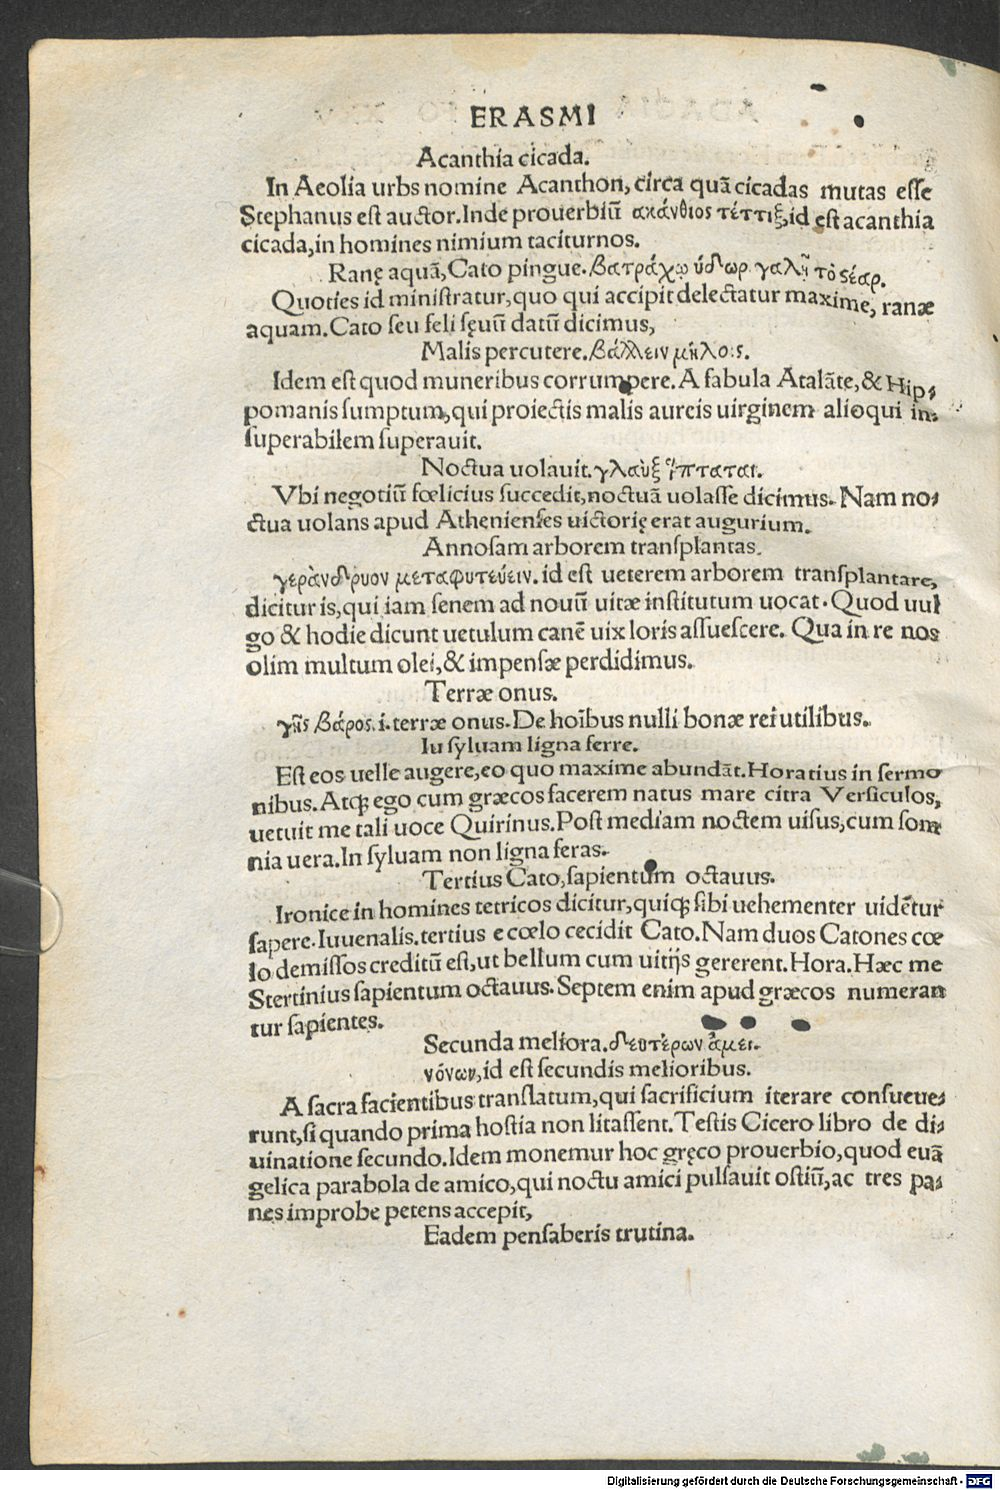 ERASMI
Acanthia cicada.
In Aeolia urbs nomine Acanthon, circa quã cicadas mutas esse
Stephanus est auctor. Inde prouerbiũ ακάνθιος τέττιξ, id est acanthia
cicada, in homines nimium taciturnos.
Ranę aquã, Cato pingue. βατράχῳ ὑδωρ. γαλῆ τὸ ςέαρ.
Quoties id ministratur, quo qui accipit delectatur maxime, ranæ
aquam. Cato seu feli sęuũ datũ dicimus,
Malis percutere. βάλλειν μήλοις.
Idem est quod muneribus corrumpere. A fabula Atalãte, & Hip⸗
pomanis sumptum, qui proiectis malis aureis uirginem alioqui in⸗
superabilem superauit.
Noctua uolauit. γλαὺξ ἵπταται.
Vbi negotiũ fœlicius succedit, noctuã uolasse dicimus. Nam no⸗
ctua uolans apud Athenienses uictorię erat augurium.
Annosam arborem transplantas.
γεράνδρυον μεταφυτεύειν. id est ueterem arborem transplantare,
dicitur is, qui iam senem ad nouũ uitæ institutum uocat. Quod uul
go & hodie dicunt uetulum canẽ uix loris assuescere. Qua in re nos
olim multum olei, & impensæ perdidimus.
Terræ onus.
γῆς βάρος. i. terræ onus. De hoĩbus nulli bonæ rei utilibus.
Iu syluam ligna ferre.
Est eos uelle augere, eo quo maxime abundãt. Horatius in sermo
nibus. Atq; ego cum græcos facerem natus mare citra Versiculos,
uetuit me tali uoce Quirinus. Post mediam noctem uisus, cum som
nia uera. In syluam non ligna feras.
Tertius Cato, sapientum octauus.
Ironice in homines tetricos dicitur, quiq; sibi uehementer uidẽtur
sapere. Iuuenalis. tertius e cœlo cecidit Cato. Nam duos Catones cœ
lo demissos creditũ est, ut bellum cum uitijs gererent. Hora. Hæc me
Stertinius sapientum octauus. Septem enim apud græcos numeran
tur sapientes.
Secunda meliora. δευτέρων ἀμει.
νόνων, id est secundis melioribus.
A sacra facientibus translatum, qui sacrificium iterare consueue⸗
runt, si quando prima hostia non litassent. Testis Cicero libro de di⸗
uinatione secundo. Idem monemur hoc gręco prouerbio, quod euã
gelica parabola de amico, qui noctu amici pulsauit ostiũ, ac tres pa⸗
nes improbe petens accepit,
Eadem pensaberis trutina.
Digitalisierung gefördert durch die Deutsche Forschungsgemeinschaft - DFG